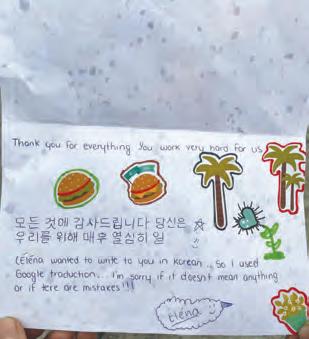 Thank you for everything You work very hard for us
모든 것에 감사드립니다 당신은
우리를 위해 매우 열심히 일
(Eléna wanted to write to you in Korean.. So I used
Google traduction... I'm sorry if it doesn't mean anything
or if tere are mistakes!!!
Eléna